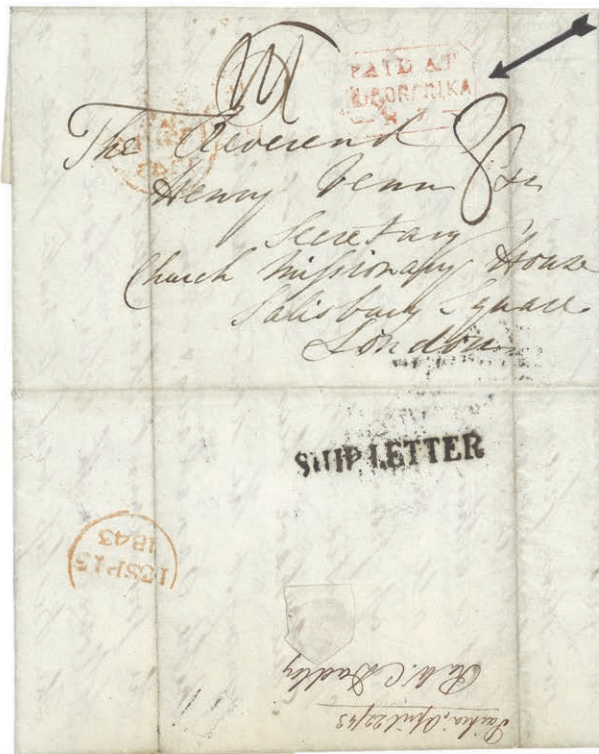 PAID AT
KORORARIKA
N.Z
The Reverend
Henry Venn
Secretary
Church Missionary House
Salisbury Square
London
SHIP LETTER
13SP13
1843
Paihia, April 22/43
Revd. W. C. Dudley